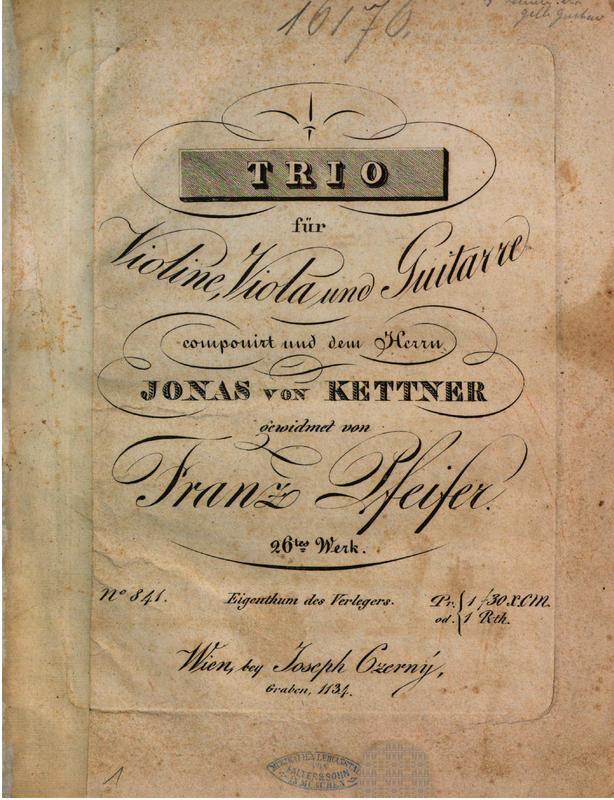 16176.
TRIO
für
Violine, Viola und Guitarre
componirt und dem Herrn
JONAS VON KETTNER
gewidmet von
Franz Pfeifer.
26tes Werk.
No 841. Eigenthum des Verlegers. Pr. { 1 f 30 X.C.M.
od. { 1 Rth.
Wien, bey Joseph Czerný,
Graben, 1134.
MUSIKALIEN LEIHANSTALT
VON
FALTER & SOHN
IN MÜNCHEN
1